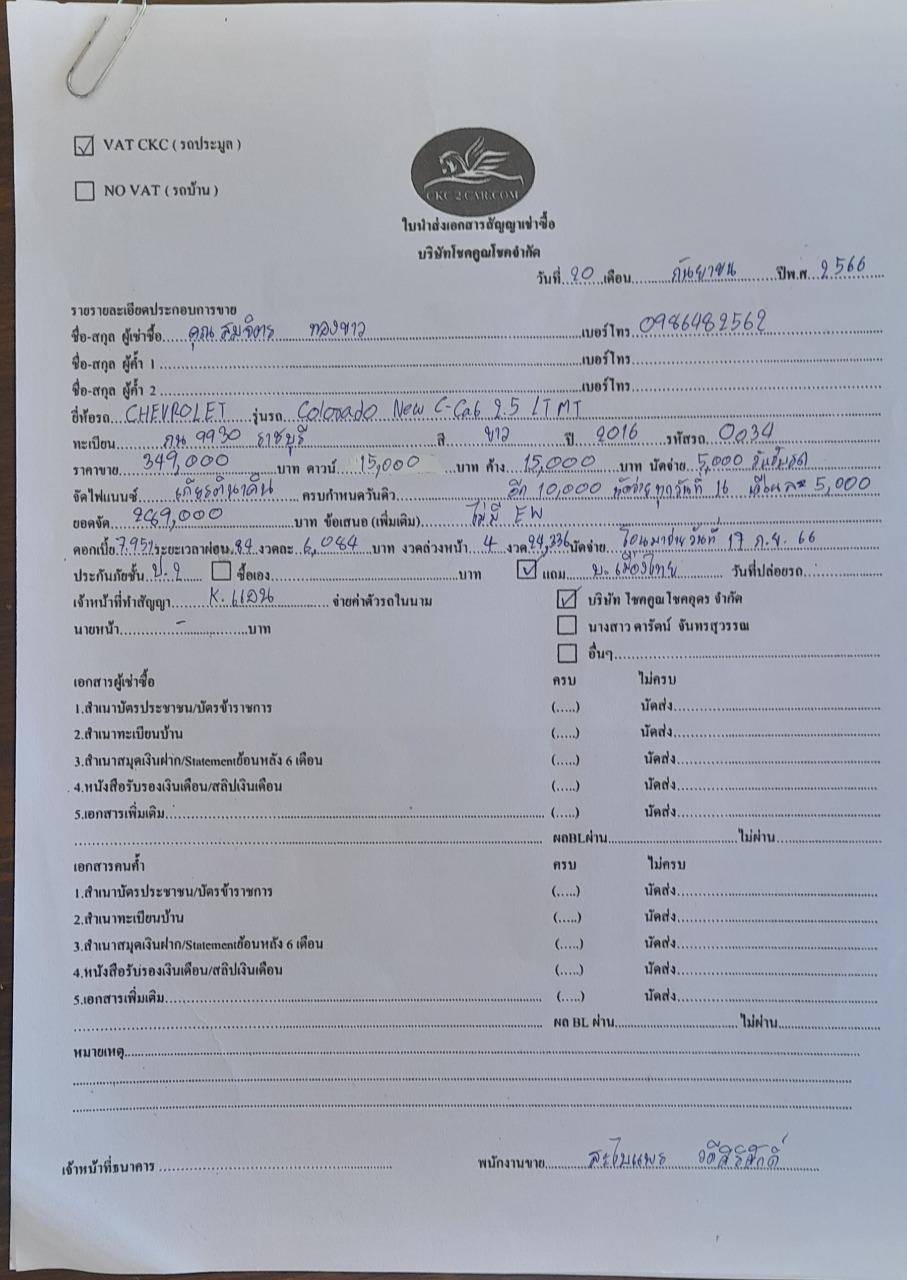 VAT CKC ( รถประมูล )
NO VAT ( รถบ้าน )
CKC 2 CAR.COM
ใบนำส่งเอกสารสัญญาเช่าซื้อ
บริษัทโชคคูณโชคจำกัด
วันที่ 20 เดือน กันยายน ปีพ.ศ. 2566
รายรายละเอียดประกอบการขาย
ชื่อ-สกุล ผู้เช่าซื้อ คุณ สมจิตร ทองขาว เบอร์โทร 0986482562
ชื่อ-สกุล ผู้ค้ำ 1 เบอร์โทร
ชื่อ-สกุล ผู้ค้ำ 2 เบอร์โทร
ยี่ห้อรถ CHEVROLET รุ่นรถ Colorado New C-Cab 2.5 LT MT
ทะเบียน 9930 ราชบุรี สี ขาว ปี 2016 รหัสรถ 0034
ราคาขาย 349,000 บาท ดาวน์ 15,000 บาท ค้าง 15,000 บาท นัดจ่าย 5,000 วันรับรถ
จัดไฟแนนซ์ เกียรตินาคิน ครบกำหนดวันคิว อีก 10,000 นัดจ่ายทุกวันที่ 16 เดือนละ 5,000
ยอดจัด 289,000 บาท ข้อเสนอ (เพิ่มเติม) ไม่มี EW
ดอกเบี้ย 7.95% ระยะเวลาผ่อน 84 งวดละ 6,084 บาท งวดล่วงหน้า 4 งวด 24,336 นัดจ่าย โอนมาวันที่ 17 ก.ย. 66
ประกันภัยชั้น ป.2 ซื้อเอง บาท แถม บ.เมืองไทย วันที่ปล่อยรถ
เจ้าหน้าที่ทำสัญญา K. แอน จ่ายค่าตัวรถในนาม บริษัท โชคคูณโชคอุดร จำกัด
นายหน้า - บาท นางสาว ดารัตน์ จันทรสุวรรณ
อื่นๆ
เอกสารผู้เช่าซื้อ ครบ ไม่ครบ
1.สำเนาบัตรประชาชน/บัตรข้าราชการ (.....) นัดส่ง
2.สำเนาทะเบียนบ้าน (.....) นัดส่ง
3.สำเนาสมุดเงินฝาก/Statementย้อนหลัง 6 เดือน (.....) นัดส่ง
4.หนังสือรับรองเงินเดือน/สลิปเงินเดือน (.....) นัดส่ง
5.เอกสารเพิ่มเติม (.....) นัดส่ง
ผลBLผ่าน ไม่ผ่าน
เอกสารคนค้ำ ครบ ไม่ครบ
1.สำเนาบัตรประชาชน/บัตรข้าราชการ (.....) นัดส่ง
2.สำเนาทะเบียนบ้าน (.....) นัดส่ง
3.สำเนาสมุดเงินฝาก/Statementย้อนหลัง 6 เดือน (.....) นัดส่ง
4.หนังสือรับรองเงินเดือน/สลิปเงินเดือน (.....) นัดส่ง
5.เอกสารเพิ่มเติม (.....) นัดส่ง
ผล BL ผ่าน ไม่ผ่าน
หมายเหตุ
เจ้าหน้าที่ธนาคาร พนักงานขาย สะไบแพร